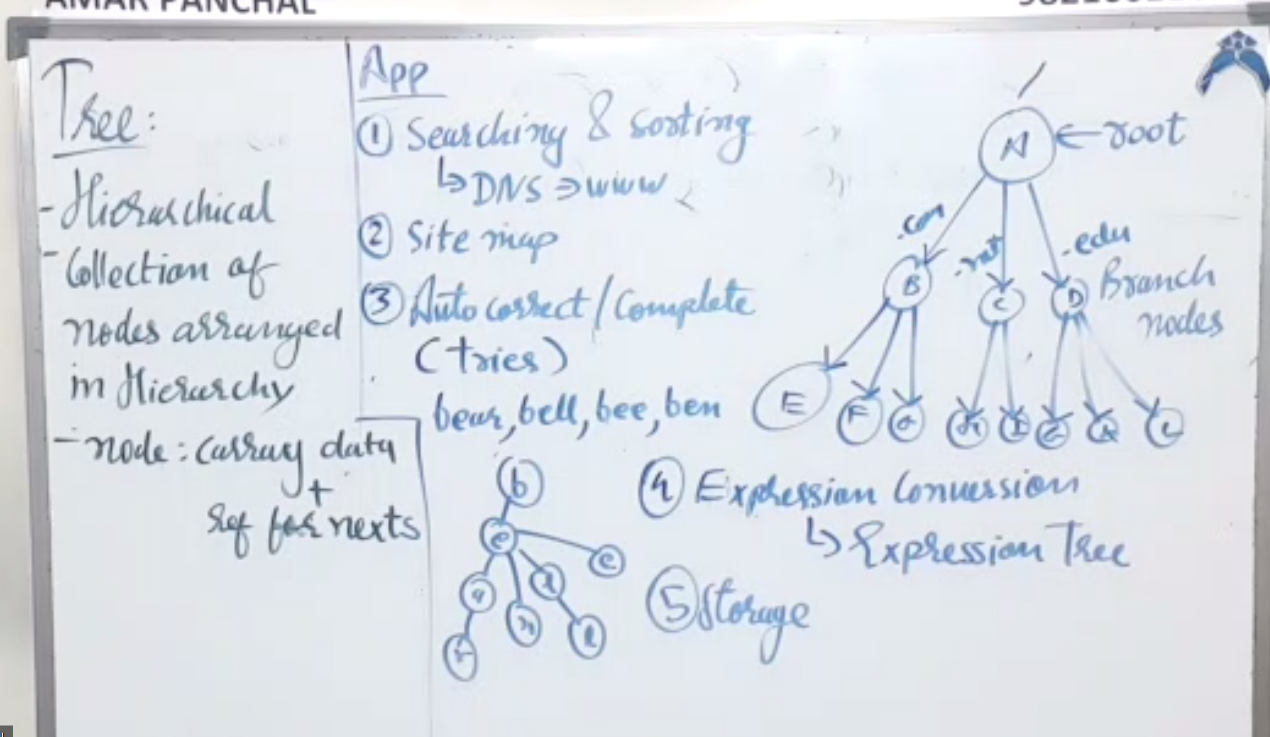 AMAR PANCHAL
Tree:
- Hierarchical
- Collection of
nodes arranged
in Hierarchy
- node: carray data
+
ref for nexts
App
① Searching & sorting
↳ DNS ⇒ www
② Site map
③ Auto correct / Complete
(tries)
bear, bell, bee, ben
b
e
a
n
l
e
r
l
④ Expression Conversion
↳ Expression Tree
⑤ Storage
/
A ← root
.com
.net
.edu
B
C
D
Branch
nodes
E
F
G
H
I
L